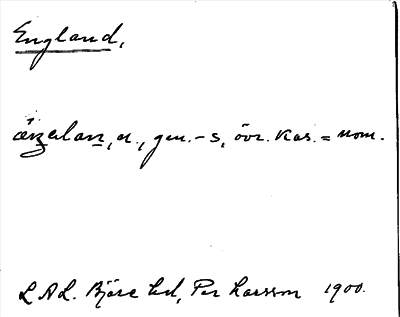 England,
n., gen. -s, övr. kas. = nom.
L A L. Bjäre hd, Per Larsson 1900.